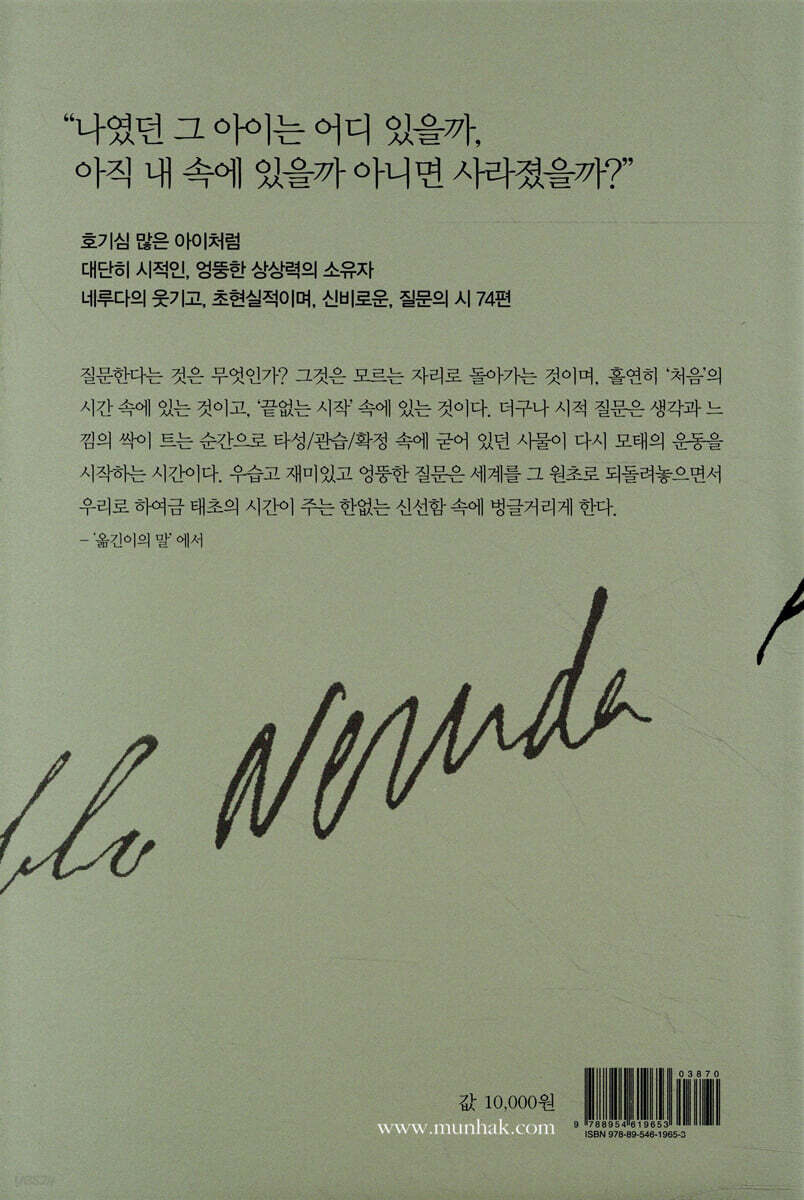 “나였던 그 아이는 어디 있을까,
아직 내 속에 있을까 아니면 사라졌을까?”
호기심 많은 아이처럼
대단히 시적인, 엉뚱한 상상력의 소유자
네루다의 웃기고, 초현실적이며, 신비로운, 질문의 시 74편
질문한다는 것은 무엇인가? 그것은 모르는 자리로 돌아가는 것이며, 홀연히 ‘처음’의
시간 속에 있는 것이고, ‘끝없는 시작’ 속에 있는 것이다. 더구나 시적 질문은 생각과 느
낌의 싹이 트는 순간으로 타성/관습/확정 속에 굳어 있던 사물이 다시 모태의 운동을
시작하는 시간이다. 우습고 재미있고 엉뚱한 질문은 세계를 그 원초로 되돌려놓으면서
우리로 하여금 태초의 시간이 주는 한없는 신선함 속에 벙글거리게 한다.
– ‘옮긴이의 말’에서
blo Neruda
값 10,000원
www.munhak.com
03870
9 788954 619653
ISBN 978-89-546-1965-3